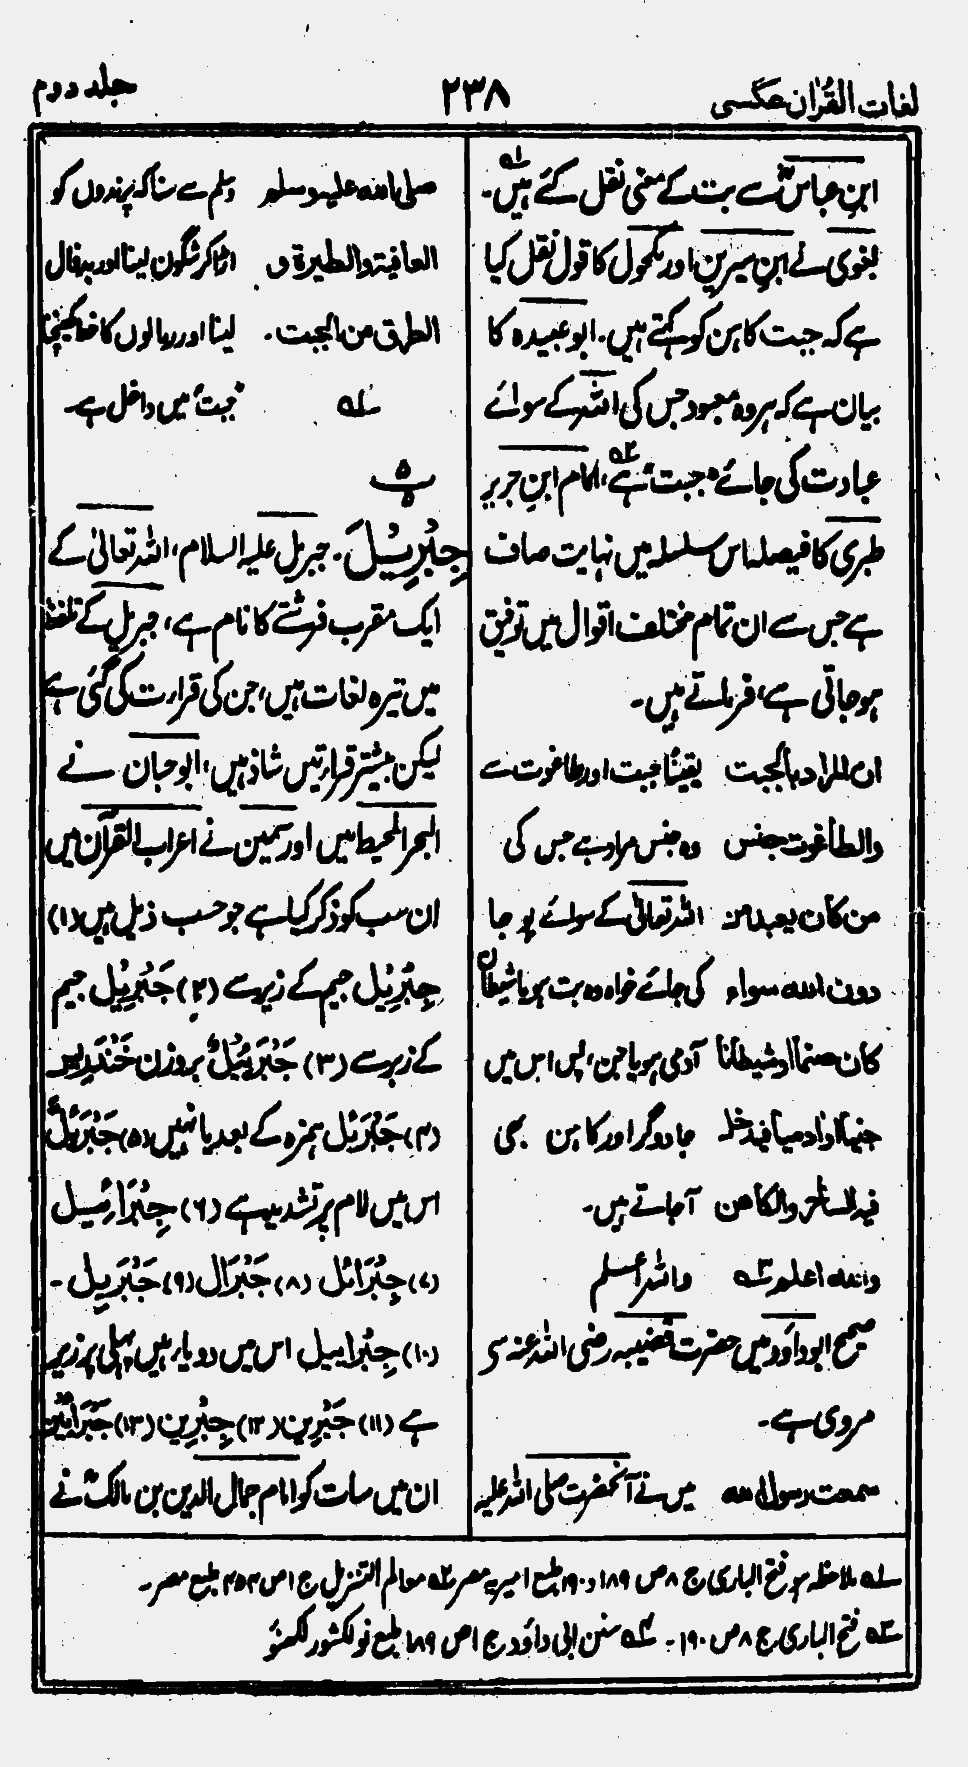 لغات القرآن عکسی
۲۳۸
جلد دوم
ابن عباسؓ سے بت کے معنی نقل کئے ہیں۔ ۱؎
بغوی نے ابن سیرین اور مکحول کا قول نقل کیا
ہے کہ جبت کاہن کو کہتے ہیں۔ ابو عبیدہ کا
بیان ہے کہ ہر وہ معبود جس کی اللہ کے سوائے
عبادت کی جائے "جبت" ہے ۲؎، امام ابن جریر
طبری کا فیصلہ اس سلسلہ میں نہایت صاف
ہے جس سے ان تمام مختلف اقوال میں توفیق
ہو جاتی ہے، فرماتے ہیں۔
ان المراد بالجبت یقیناً جبت اور طاغوت سے
والطاغوت جنس وہ جنس مراد ہے جس کی
من کان یعبد من اللہ تعالیٰ کے سوائے پوجا
دون الله سواء کی جائے خواہ وہ بت ہو یا شیطان
کان صنما او شیطانا آدمی ہو یا جن، پس اس میں
جنیا او آدمیا فیدخل جادوگر اور کاہن بھی
فیہ الساحر والکاھن آ جاتے ہیں۔
والله اعلم ۳؎ واللہ اعلم
صحیح ابو داؤد میں حضرت قضیبہ رضی اللہ عنہ سے
مروی ہے۔
سمعت رسول الله میں نے آنحضرت صلی اللہ علیہ
صلی الله علیہ وسلم وسلم سے سنا کہ پرندوں کو
العافیة والطیرة و اڑا کر شگون لینا اور بدفال
الطرق من الجبت۔ لینا اور رمالوں کا خط کھینچنا
۴؎ جبت میں داخل ہے۔
جِبْرِیْلَ۔ جبریل علیہ السلام، اللہ تعالیٰ کے
ایک مقرب فرشتے کا نام ہے، جبریل کے تلفظ
میں تیرہ لغات ہیں، جن کی قرارت کی گئی ہے
لیکن بیشتر قرارتیں شاذ ہیں، ابو حیان نے
البحر المحیط میں اور سمین نے اعراب القرآن میں
ان سب کو ذکر کیا ہے جو حسب ذیل ہیں (۱)
جِبْرِیْل جیم کے زیر سے (۲) جَبْرِیْل جیم
کے زبر سے (۳) جَبْرَئِیْل بروزن خَنْدَرِیْس
(۴) جَبْرَئِل ہمزہ کے بعد یا نہیں (۵) جَبْرَئِلّ
اس میں لام پر تشدید ہے (۶) جِبْرَائِیل
(۷) جِبْرَائل (۸) جَبْرَال (۹) جَبْرَیِیل۔
(۱۰) جِبْرَایِیل اس میں دو یار ہیں پہلی پر زیر
ہے (۱۱) جَبْرِین (۱۲) جِبْرِین (۱۳) جَبْرَائین
ان میں سات کو امام جمال الدین بن مالکؒ نے
۱؎ ملاحظہ ہو فتح الباری ج ۸ ص ۱۸۹ و ۱۹۰ طبع امیریہ مصر ۲؎ معالم التنزیل ج ۱ ص ۴۵۴ طبع مصر۔
۳؎ فتح الباری ج ۸ ص ۱۹۰۔ ۴؎ سنن ابی داؤد ج ۱ ص ۱۸۹ طبع نولکشور لکھنؤ